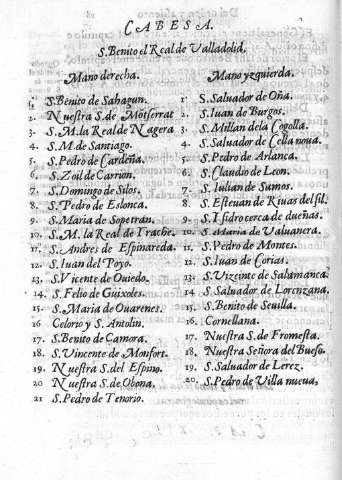 CABESA.
S. Benito el Real de Valladolid,
Mano derecha.
1. S. Benito de Sahagun.
2. Nuestra S. de Mõtserrat
3. S. M. la Real de Nagera
4. S. M. de Santiago.
5. S. Pedro de Cardeña.
6. S. Zoil de Carrion.
7. S. Domingo de Silos.
8. S. Pedro de Eslonca.
9. S. Maria de Sopetran.
10. S. M. la Real de Irache.
11. S. Andres de Espinareda.
12. S. Iuan del Poyo.
13. S. Vicente de Ouiedo.
14. S. Felio de Guixoles.
15. S. Maria de Ouarenes.
16 Celorio y S. Antolin.
17. S. Benito de Çamora.
18. S. Vincente de Monfort.
19. Nuestra S. del Espino.
20 Nuestra S. de Obona.
21 S. Pedro de Tenorio.
Mano yzquierda.
1. S. Saluador de Oña.
2. S. Iuan de Burgos.
3. S. Millan de la Cogolla.
4. S. Saluador de Cella noua.
5. S. Pedro de Arlanca.
6. S. Claudio de Leon.
7. S. Iulian de Samos.
8. S. Esteuan de Riuas del sil.
9. S. Isidro cerca de dueñas.
10. S. Maria de Valuanera.
11. S. Pedro de Montes.
12. S. Iuan de Corias.
13. S. Vizeinte de Salamanca.
14 S. Saluador de Lorenzana.
15. S. Benito de Seuilla.
16. Cornellana.
17. Nuestra S. de Fromesta.
18. Nuestra Señora del Bueso.
19. S. Saluador de Lerez.
20. S. Pedro de Villa nueua,